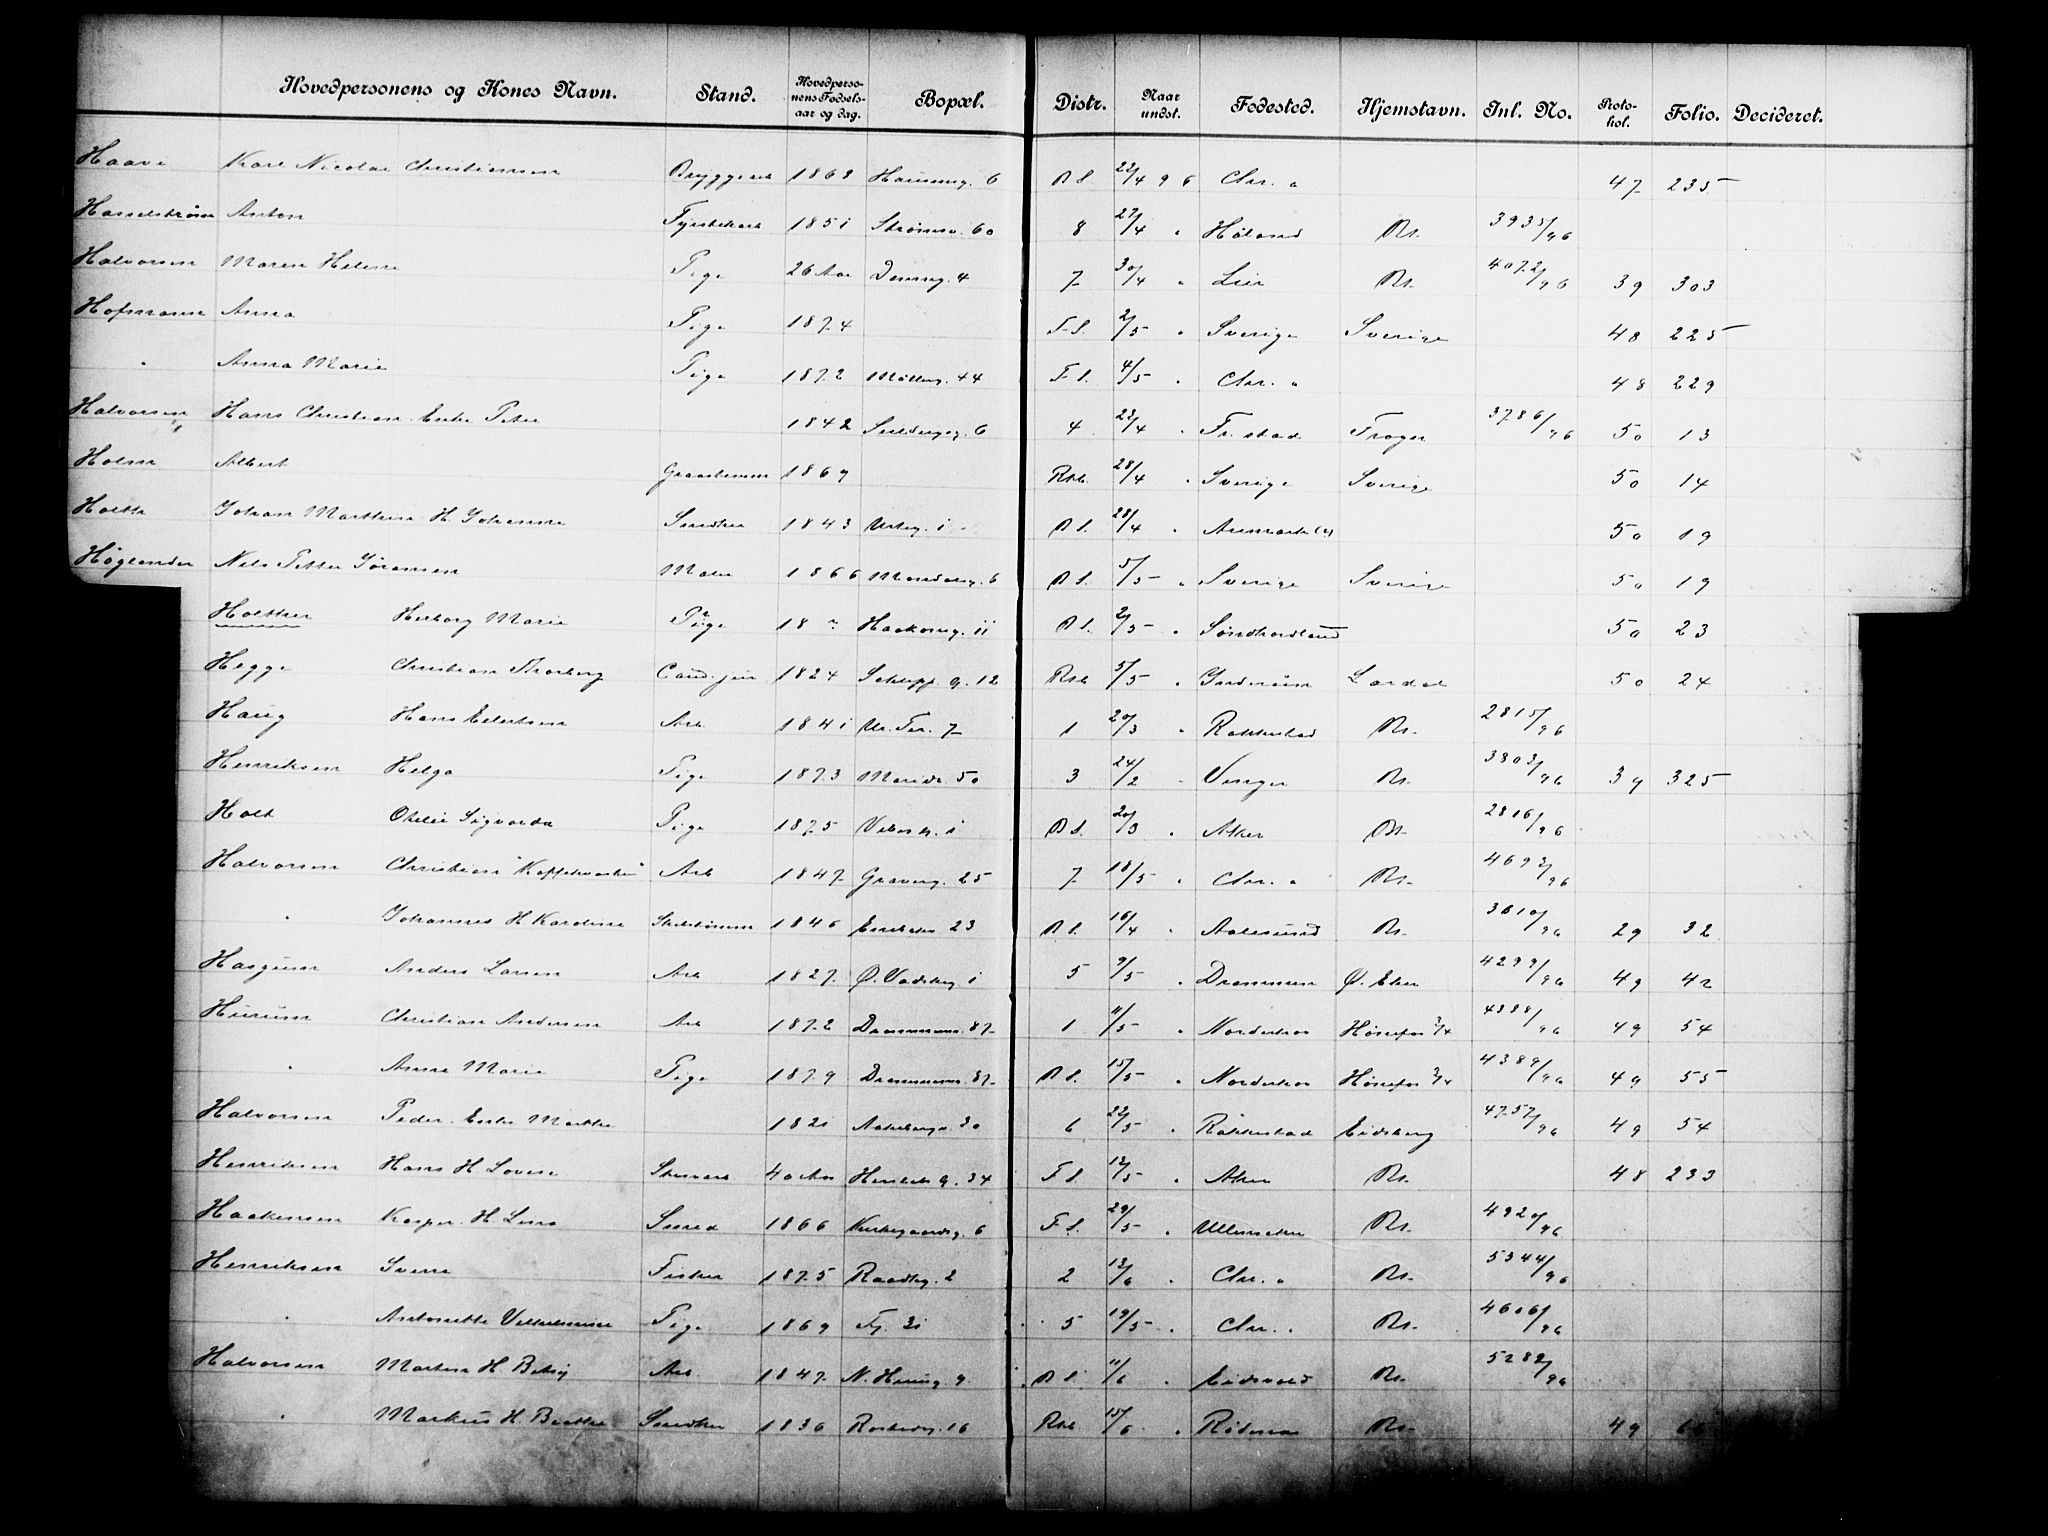 Hovedpersonens og Kones Navn. Stand. Hovedpersonens Fødselsaar og dag. Bopæl. Distr. Naar undst. Fødested. Hjemstavn. Inl. No. Protokol. Folio. Decideret.
Haave Karl Nicolai Christiansen Bryggearb 1868 6 B S. 22/4 96 Chr. " 47 235
Hasselstrøm Anton 1851 Strømsv. 60 8 27/4 " Høland Br. 3935/96
Halvorsen Maren Helene Pige 26 Aar 4 7 30/4 " Lier Br. 4072/96 39 303
Hofmann Anna Pige 1874 F S. 2/5 " Sverige Sverige 48 225
" Anna Marie Pige 1872 Møllerg. 44 F S. 4/5 " Chr. " 48 229
Halvorsen Hans Christian Enke Petra 1842 6 4 23/4 " Fr. stad Trøger 3786/96 50 13
Holm Albert 1869 Rhb. 28/4 " Sverige Sverige 50 14
Holth Johan Mathias H. Johanne Snedker 1843 Urteg. 1 B S. 28/4 " Aremark 50 19
Høglander Nils Petter Göransen Maler 1866 Mandalsg. 6 B S. 5/5 " Sverige Sverige 50 19
Holther Herborg Marie Pige 18 " Haakonsg. 11 B S. 2/5 " Søndhordland 50 23
Hegge Christian Thorberg Cand. jur 1824 Schupp. G. 12 Rhb 5/5 " Inderøen Lardal 50 24
Haug Hans Eilertsen Arb 1841 Ur. Ter. 7 1 20/3 " Rakkestad Br. 2815/96
Henriksen Helga Pige 1873 Marids. 50 3 24/2 " Vinger Br. 3803/96 39 325
Holt Otelie Sigvarda Pige 1875 1 B S. 20/3 " Aker Br. 2816/96
Halvorsen Christian "Kaffekværn" Arb 1847 Graverg. 25 7 18/5 " Chr. " Br. 4692/96
" Johannes H Karoline 1846 23 B S. 16/4 " Aalesund Br. 3610/96 29 32
Hasgum Anders Larsen Arb 1827 Ø. Vadskeg 1 5 9/5 " Drammen Ø. Eker 4299/96 49 42
Hurum Christian Andersen Arb 1872 Drammensv. 87 1 11/5 " Norderhov Hønefos 3/4 4388/96 49 54
" Anne Marie Pige 1879 Drammensv. 87 B S. 15/5 " Norderhov Hønefos 3/4 4389/96 49 55
Halvorsen Peder. Enke Marthe 1821 Aakebergv. 30 6 22/5 " Rakkestad Eidsberg 4757/96 49 54
Henriksen Hans H. Lovise 40 Aar 34 F S. 12/5 " Aker Br. 48 233
Haakensen Kasper. H. Lina Smed 1866 Kirkegaardsg. 6 F S. 29/5 " Ullensaker Br. 4920/96
Henriksen Svenn Fisker 1875 Raadhg. 2 2 13/6 " Chr. " Br. 5344/96
" Antonette Vilhelmine Pige 1869 Fj. 31 5 19/5 " Chr. " Br. 4606/96
Halvorsen Martin H. Betsy Arb. 1847 9 B S. 11/6 " Eidsvold Br. 5282/96
" Markus H. Beathe Snedker 1836 16 Rhb 15/6 " Rødenæs Br. 49